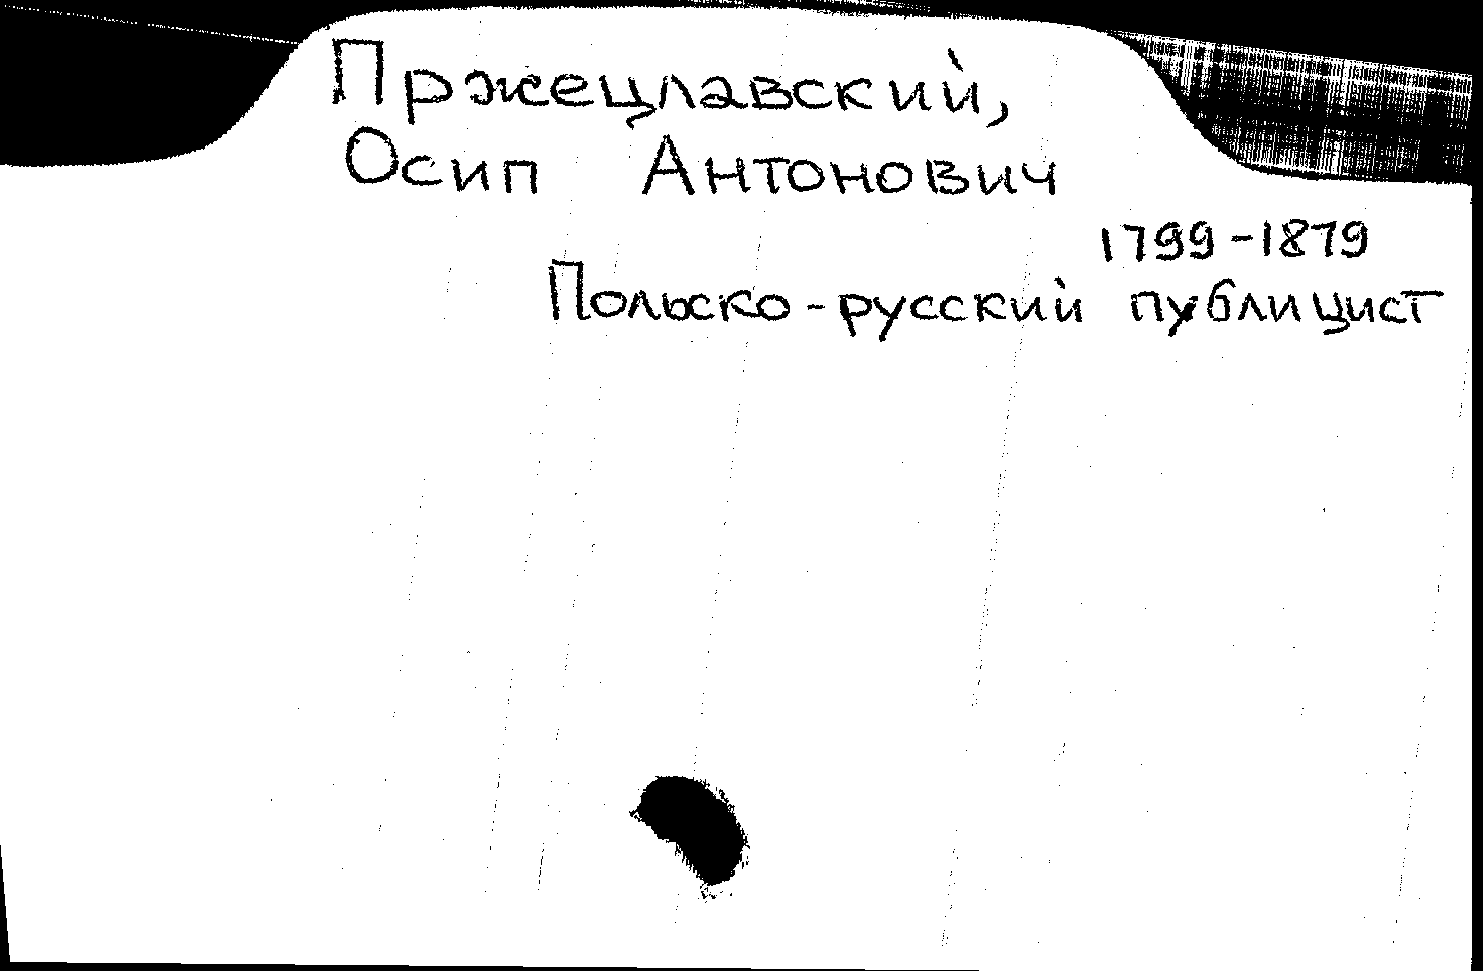 Пржецлавский,
Осип Антонович
1799-1879
Польско-русский публицист